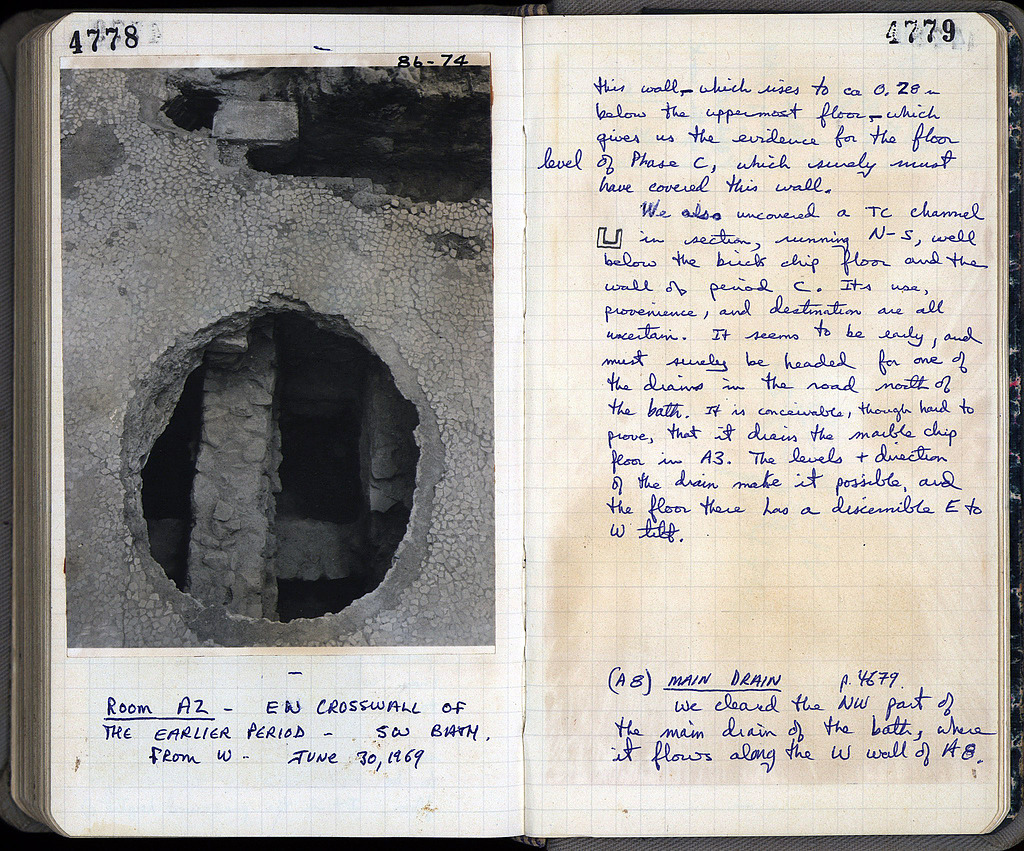 4778
86-74
Room A2 - EW CROSSWALL OF
THE EARLIER PERIOD - SW BATH.
FROM W - JUNE 30, 1969
4779
this wall, - which rises to ca 0.28 m
below the uppermost floor, - which
gives us the evidence for the floor
level of Phase C, which surely must
have covered this wall.
We also uncovered a TC channel
in section, running N-S, well
below the brick chip floor and the
wall of period C. Its use,
provenience, and destination are all
uncertain. It seems to be early, and
must surely be headed for one of
the drains in the road north of
the bath. It is conceivable, though hard to
prove, that it drains the marble chip
floor in A3. The levels + direction
of the drain make it possible, and
the floor there has a discernible E to
W tilt.
(A8) MAIN DRAIN p. 4679.
We cleared the NW part of
the main drain of the bath, where
it flows along the W wall of A8.